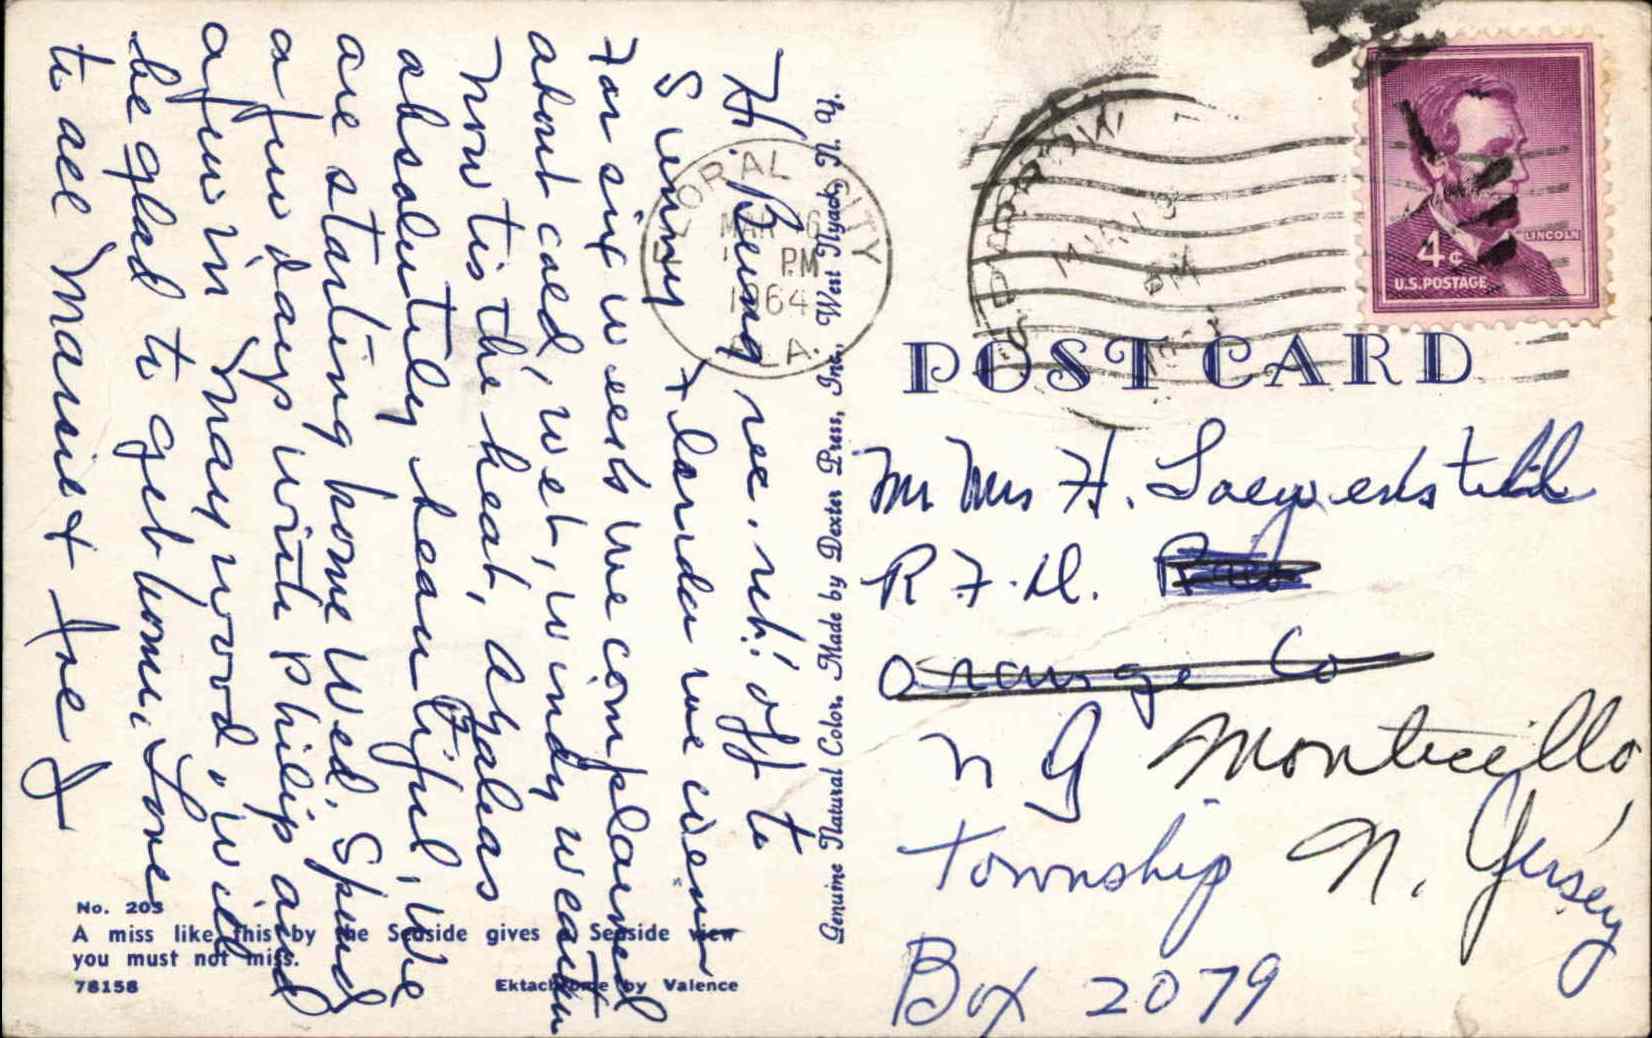 Hi Being we. sh! off to
Sunny Florida we were
For six weeks we complained
about cold, wet, windy weather
now tis the heat, azaleas
absolutily beautiful, We
are starting home Wed. Spend
a few days with Philip and
a few in Maywood, will
be glad to get home. Love
to all Marie & Joe J
No. 203
A miss like this by the Seaside gives a Seaside view
you must not miss.
78158
Ektachrome by Valence
Genuine Natural Color. Made by Dexter Press, Inc., West Nyack, N. Y.
CORAL CITY
MAR 16
PM
1964
LA.
LINCOLN
4¢
U.S. POSTAGE
POST CARD
Mr Mrs H.
R.F.D.
Orange Co
N J Monticello,
Township N. Jersey
Box 2079